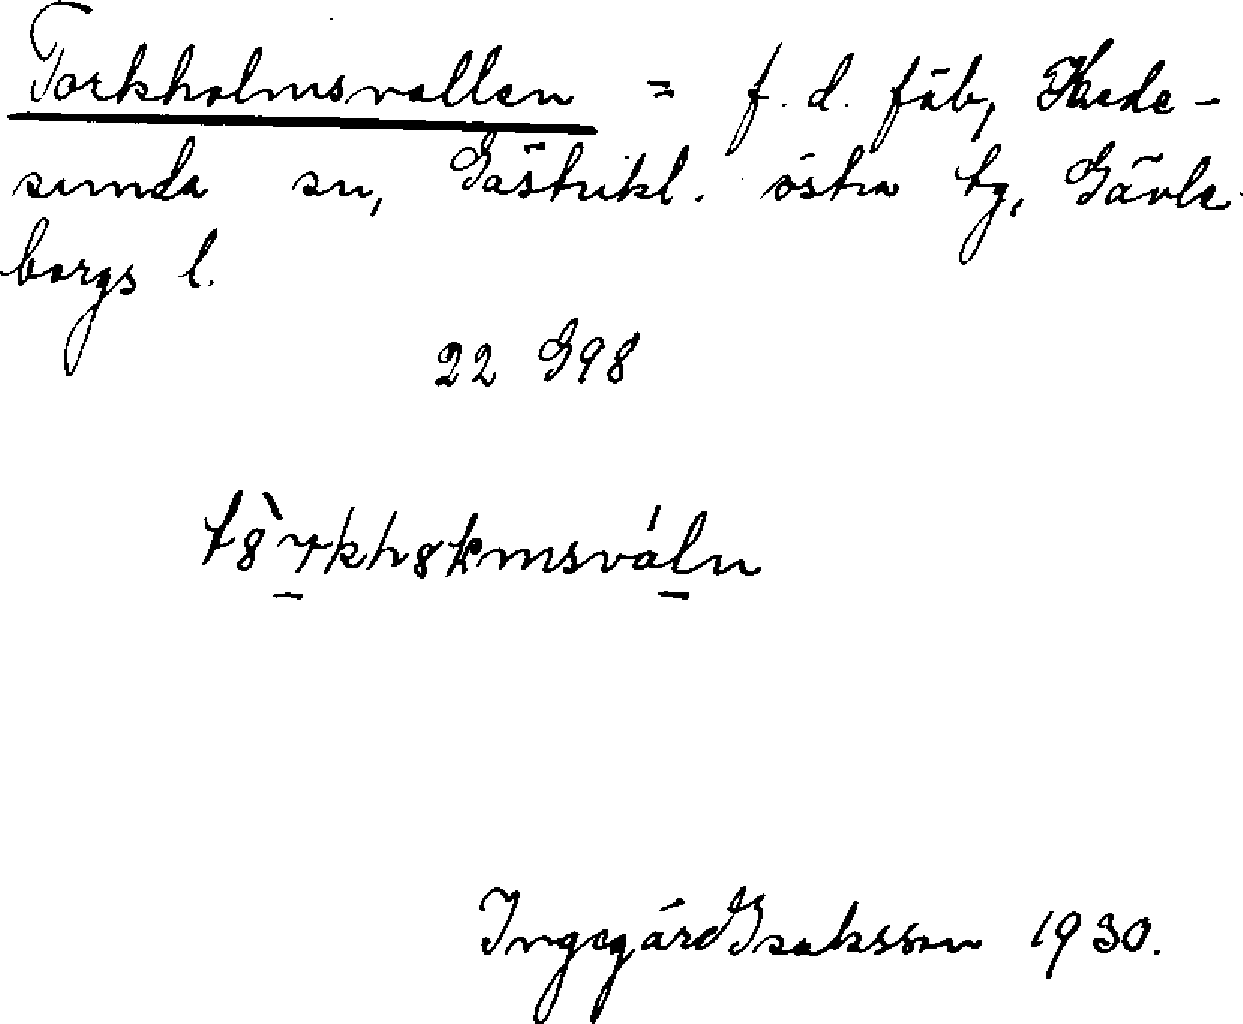 Torkholmsvallen = f. d. fäb, Hede-
sunda sn, Gästrikl. östra tg, Gävle
borgs l.
22 G98
Ingegärd Isaksson 1930.